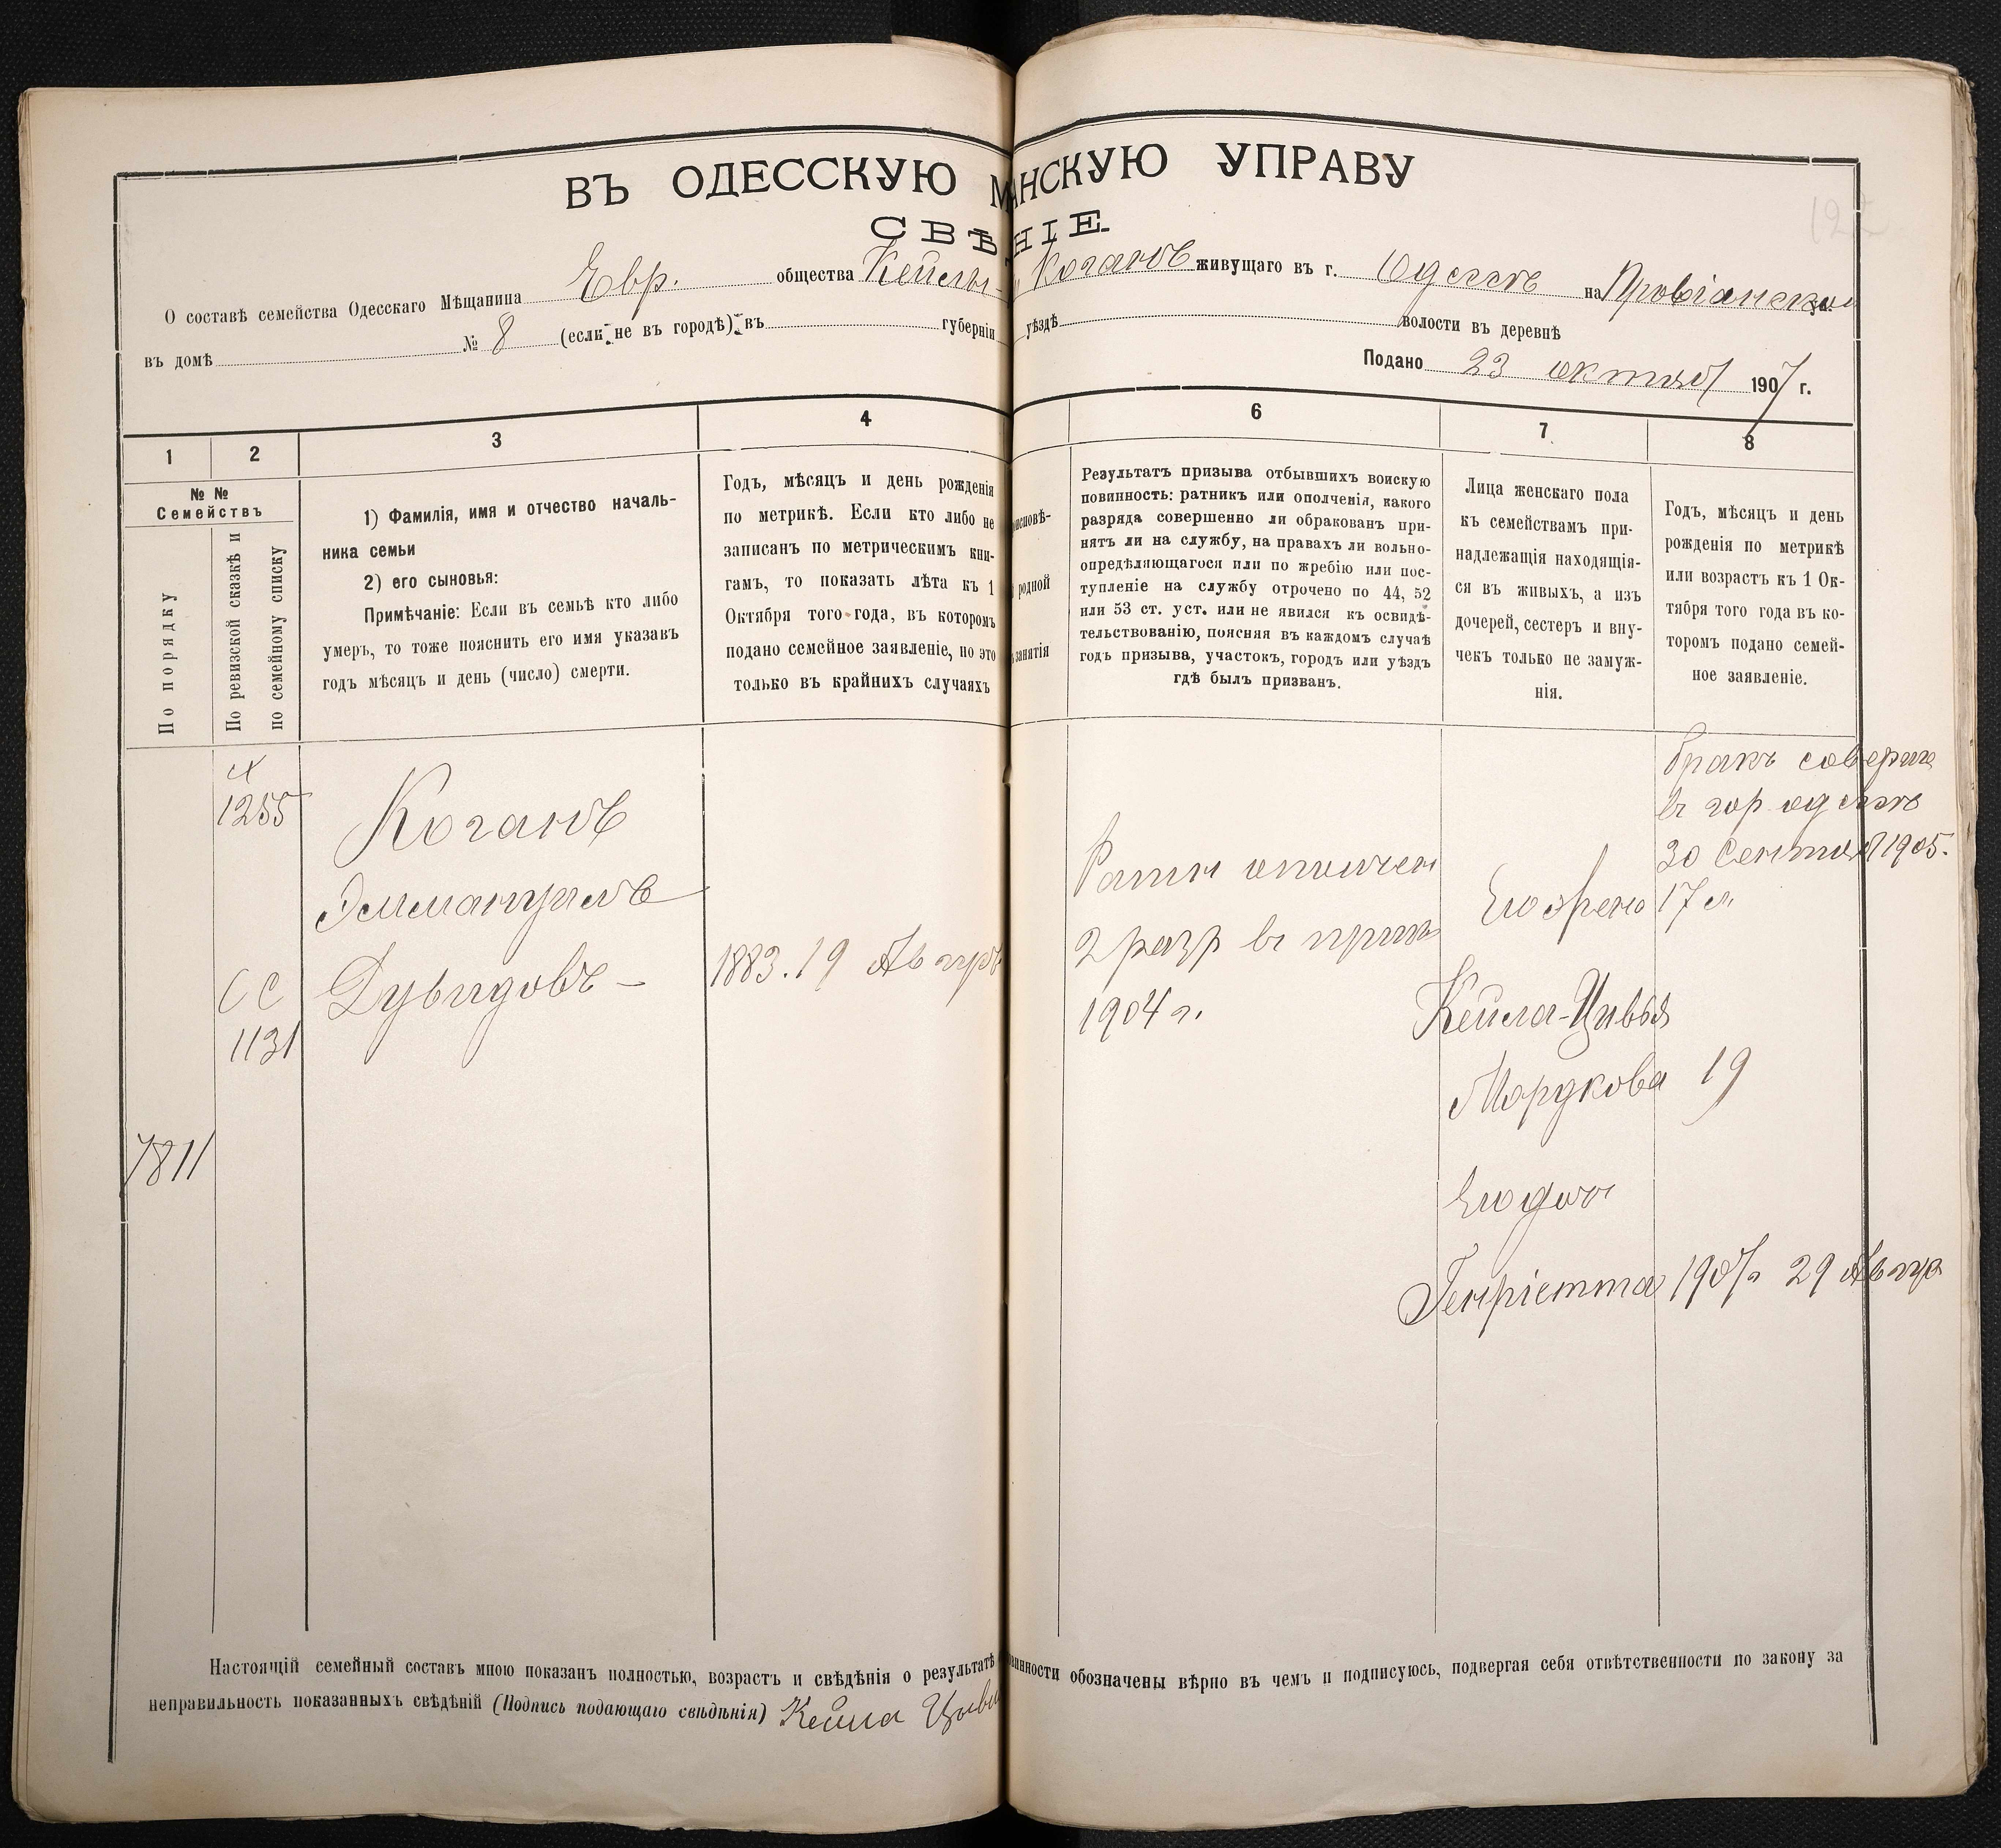 ВЪ ОДЕССКУЮ М АНСКУЮ УПРАВУ
СВѢ НІЕ.
О составѣ семейства Одесскаго Мѣщанина Евр. общества Кейлы- Коганъ живущаго въ г. Одессѣ на Провіанской ул.
въ домѣ № 8 (если не въ городѣ) въ губерніи уѣздѣ волости въ деревнѣ
Подано 23 октяб 1907 г.
1 2 3 4 6 7 8
№ №
Семействъ
По порядку
По ревизской сказкѣ и
по семейному списку
1) Фамилія, имя и отчество началь-
ника семьи
2) его сыновья:
Примѣчаніе: Если въ семьѣ кто либо
умеръ, то тоже пояснить его имя указавъ
годъ мѣсяцъ и день (число) смерти.
Годъ, мѣсяцъ и день рожденія
по метрикѣ. Если кто либо не
записанъ по метрическимъ кни-
гамъ, то показать лѣта къ 1
Октября того года, въ которомъ
подано семейное заявленіе, но это
только въ крайнихъ случаяхъ
исповѣ-
родной
занятія
Результатъ призыва отбывшихъ воискую
повинность: ратникъ или ополченія, какого
разряда совершенно ли обракованъ при-
нятъ ли на службу, на правахъ ли вольно-
опредѣляющагося или по жребію или пос-
тупленіе на службу отрочено по 44, 52
или 53 ст. уст. или не явился къ освидѣ-
тельствованію, поясняя въ каждомъ случаѣ
годъ призыва, участокъ, городъ или уѣздъ
гдѣ былъ призванъ.
Лица женскаго пола
къ семействамъ при-
надлежащія находящія-
ся въ живыхъ, а изъ
дочерей, сестеръ и вну-
чекъ только не замуж-
нія.
Годъ, мѣсяцъ и день
рожденія по метрикѣ
или возрастъ къ 1 Ок-
тября того года въ ко-
торомъ подано семей-
ное заявленіе.
1255
Коганъ
Эммануилъ
СС
1131
Дувидовъ -
7811
1883. 19 Авгус
Ратн ополчен
2 разр въ приз
1904 г.
Его жена
Кейла-Цивья
Мордкова 19
Его доч
Генріетта 1907г 29 Авгус
бракъ соверш
въ гор одессѣ
30 Сентяб 1905.
17 л.
Настоящій семейный составъ мною показанъ полностью, возрастъ и свѣдѣнія о результатѣ винности обозначены вѣрно въ чемъ и подписуюсь, подвергая себя отвѣтственности по закону за
неправильность показанныхъ свѣдѣній (Подпись подающаго свѣдѣнія) Кейла Цыви